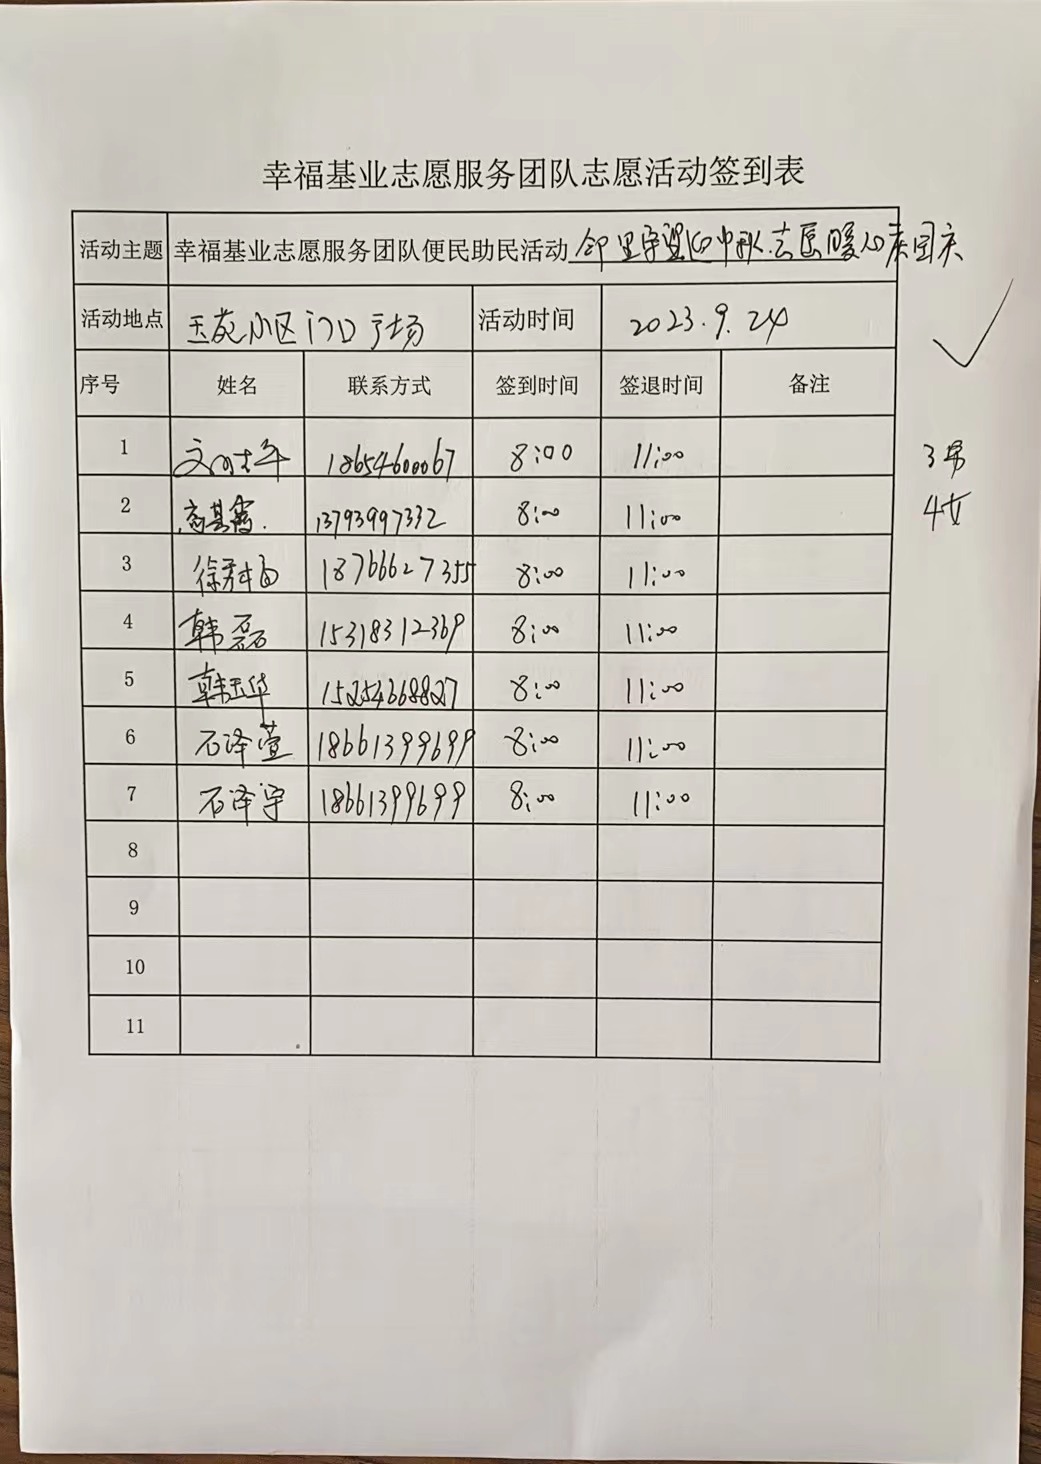 幸福基业志愿服务团队志愿活动签到表
活动主题 幸福基业志愿服务团队便民助民活动 邻里守望迎中秋 志愿暖心庆国庆
活动地点 玉苑小区门口广场 活动时间 2023.9.24
序号 姓名 联系方式 签到时间 签退时间 备注
1 18654600067 8:00 11:00
3男
2 高其霞 13793997332 8:00 11:00
4女
3 徐 18766627355 8:00 11:00
4 韩磊 15318312369 8:00 11:00
5 韩玉华 15254668827 8:00 11:00
6 石泽萱 18661399699 8:00 11:00
7 石泽宇 18661399699 8:00 11:00
8
9
10
11